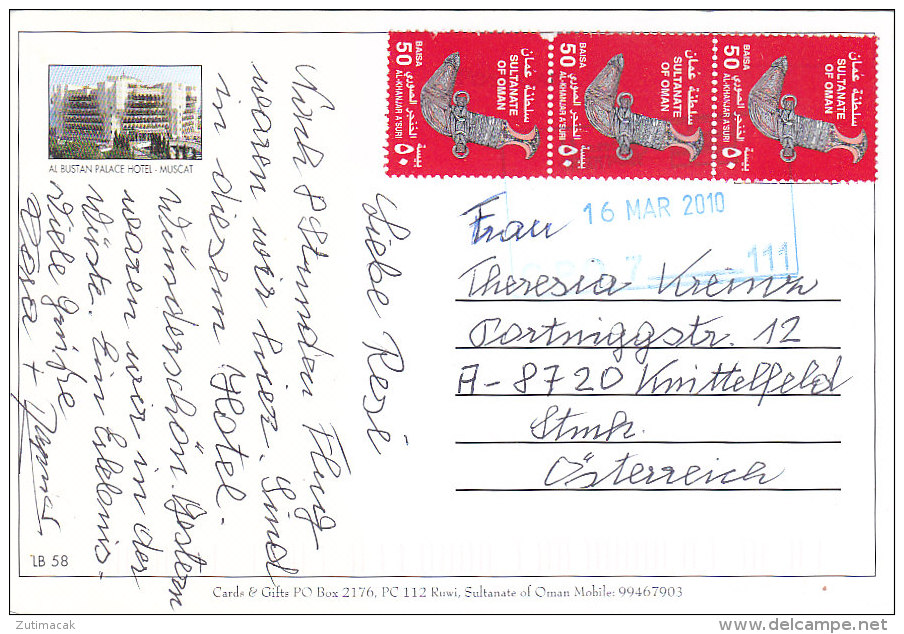 BAISA
50
سلطنة عمان
SULTANATE
OF OMAN
الخنجر الصوري
AL-KHANJAR A'SURI
بيسة
٥٠
BAISA
50
سلطنة عمان
SULTANATE
OF OMAN
الخنجر الصوري
AL-KHANJAR A'SURI
بيسة
٥٠
BAISA
50
سلطنة عمان
SULTANATE
OF OMAN
الخنجر الصوري
AL-KHANJAR A'SURI
بيسة
٥٠
AL BUSTAN PALACE HOTEL - MUSCAT
16 MAR 2010
111
Liebe Resi
Nach 8 Stunden Flug
waren wir hier. Sind
in diesem Hotel.
Wunderschön. Gestern
waren wir in der
Wüste. Ein Erlebnis.
Viele Grüße
Rosa +
Frau
Theresia
str. 12
A-8720 Knittelfeld
Stmk.
Österreich
LB 58
Cards & Gifts PO Box 2176, PC 112 Ruwi, Sultanate of Oman Mobile: 99467903
Zutimacak
delcampe.net